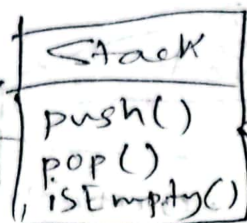 Stack
push()
pop()
isEmpty()